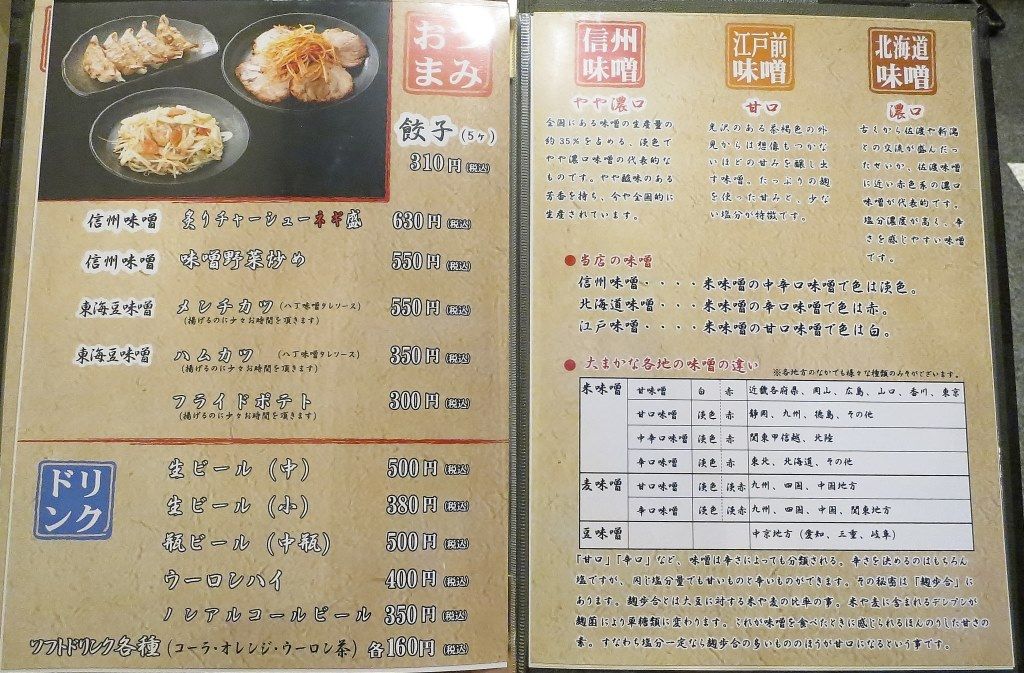 おつ
まみ
餃子(5ヶ)
310円(税込)
信州味噌 炙りチャーシューネギ盛 630円(税込)
信州味噌 味噌野菜炒め 550円(税込)
東海豆味噌 メンチカツ(八丁味噌タレソース) 550円(税込)
(揚げるのに少々お時間を頂きます)
東海豆味噌 ハムカツ(八丁味噌タレソース) 350円(税込)
(揚げるのに少々お時間を頂きます)
フライドポテト 300円(税込)
(揚げるのに少々お時間を頂きます)
ドリ
ンク
生ビール(中) 500円(税込)
生ビール(小) 380円(税込)
瓶ビール(中瓶) 500円(税込)
ウーロンハイ 400円(税込)
ノンアルコールビール 350円(税込)
ソフトドリンク各種(コーラ・オレンジ・ウーロン茶) 各160円(税込)
信州
味噌
やや濃口
全国にある味噌の生産量の
約35%を占める、淡色で
やや濃口味噌の代表的な
ものです。やや酸味のある
芳香を持ち、今や全国的に
生産されています。
江戸前
味噌
甘口
光沢のある茶褐色の外
見からは想像もつかな
いほどの甘みを醸し出
す味噌。たっぷりの麹
を使った甘みと、少な
い塩分が特徴です。
北海道
味噌
濃口
古くから佐渡や新潟
との交流が盛んだっ
たせいか、佐渡味噌
に近い赤色系の濃口
味噌が代表的です。
塩分濃度が高く、辛
さを感じやすい味噌
です。
●当店の味噌
信州味噌・・・・米味噌の中辛口味噌で色は淡色。
北海道味噌・・・米味噌の辛口味噌で色は赤。
江戸味噌・・・・米味噌の甘口味噌で色は白。
●大まかな各地の味噌の違い
※各地方のなかでも様々な種類のみそがございます。
米味噌 甘味噌 白 赤 近畿各府県、岡山、広島、山口、香川、東京
甘口味噌 淡色 赤 静岡、九州、徳島、その他
中辛口味噌 淡色 赤 関東甲信越、北陸
辛口味噌 淡色 赤 東北、北海道、その他
麦味噌 甘口味噌 淡色 淡赤 九州、四国、中国地方
辛口味噌 淡色 淡赤 九州、四国、中国、関東地方
豆味噌 中京地方(愛知、三重、岐阜)
「甘口」「辛口」など、味噌は辛さによっても分類される。辛さを決めるのはもちろん
塩ですが、同じ塩分量でも甘いものと辛いものができます。その秘密は「麹歩合」に
あります。麹歩合とは大豆に対する米や麦の比率の事。米や麦に含まれるデンプンが
麹菌により単糖類に変わります。これが味噌を食べたときに感じられるほんのりした甘さの
素。すなわち塩分一定なら麹歩合の多いもののほうが甘口になるという事です。